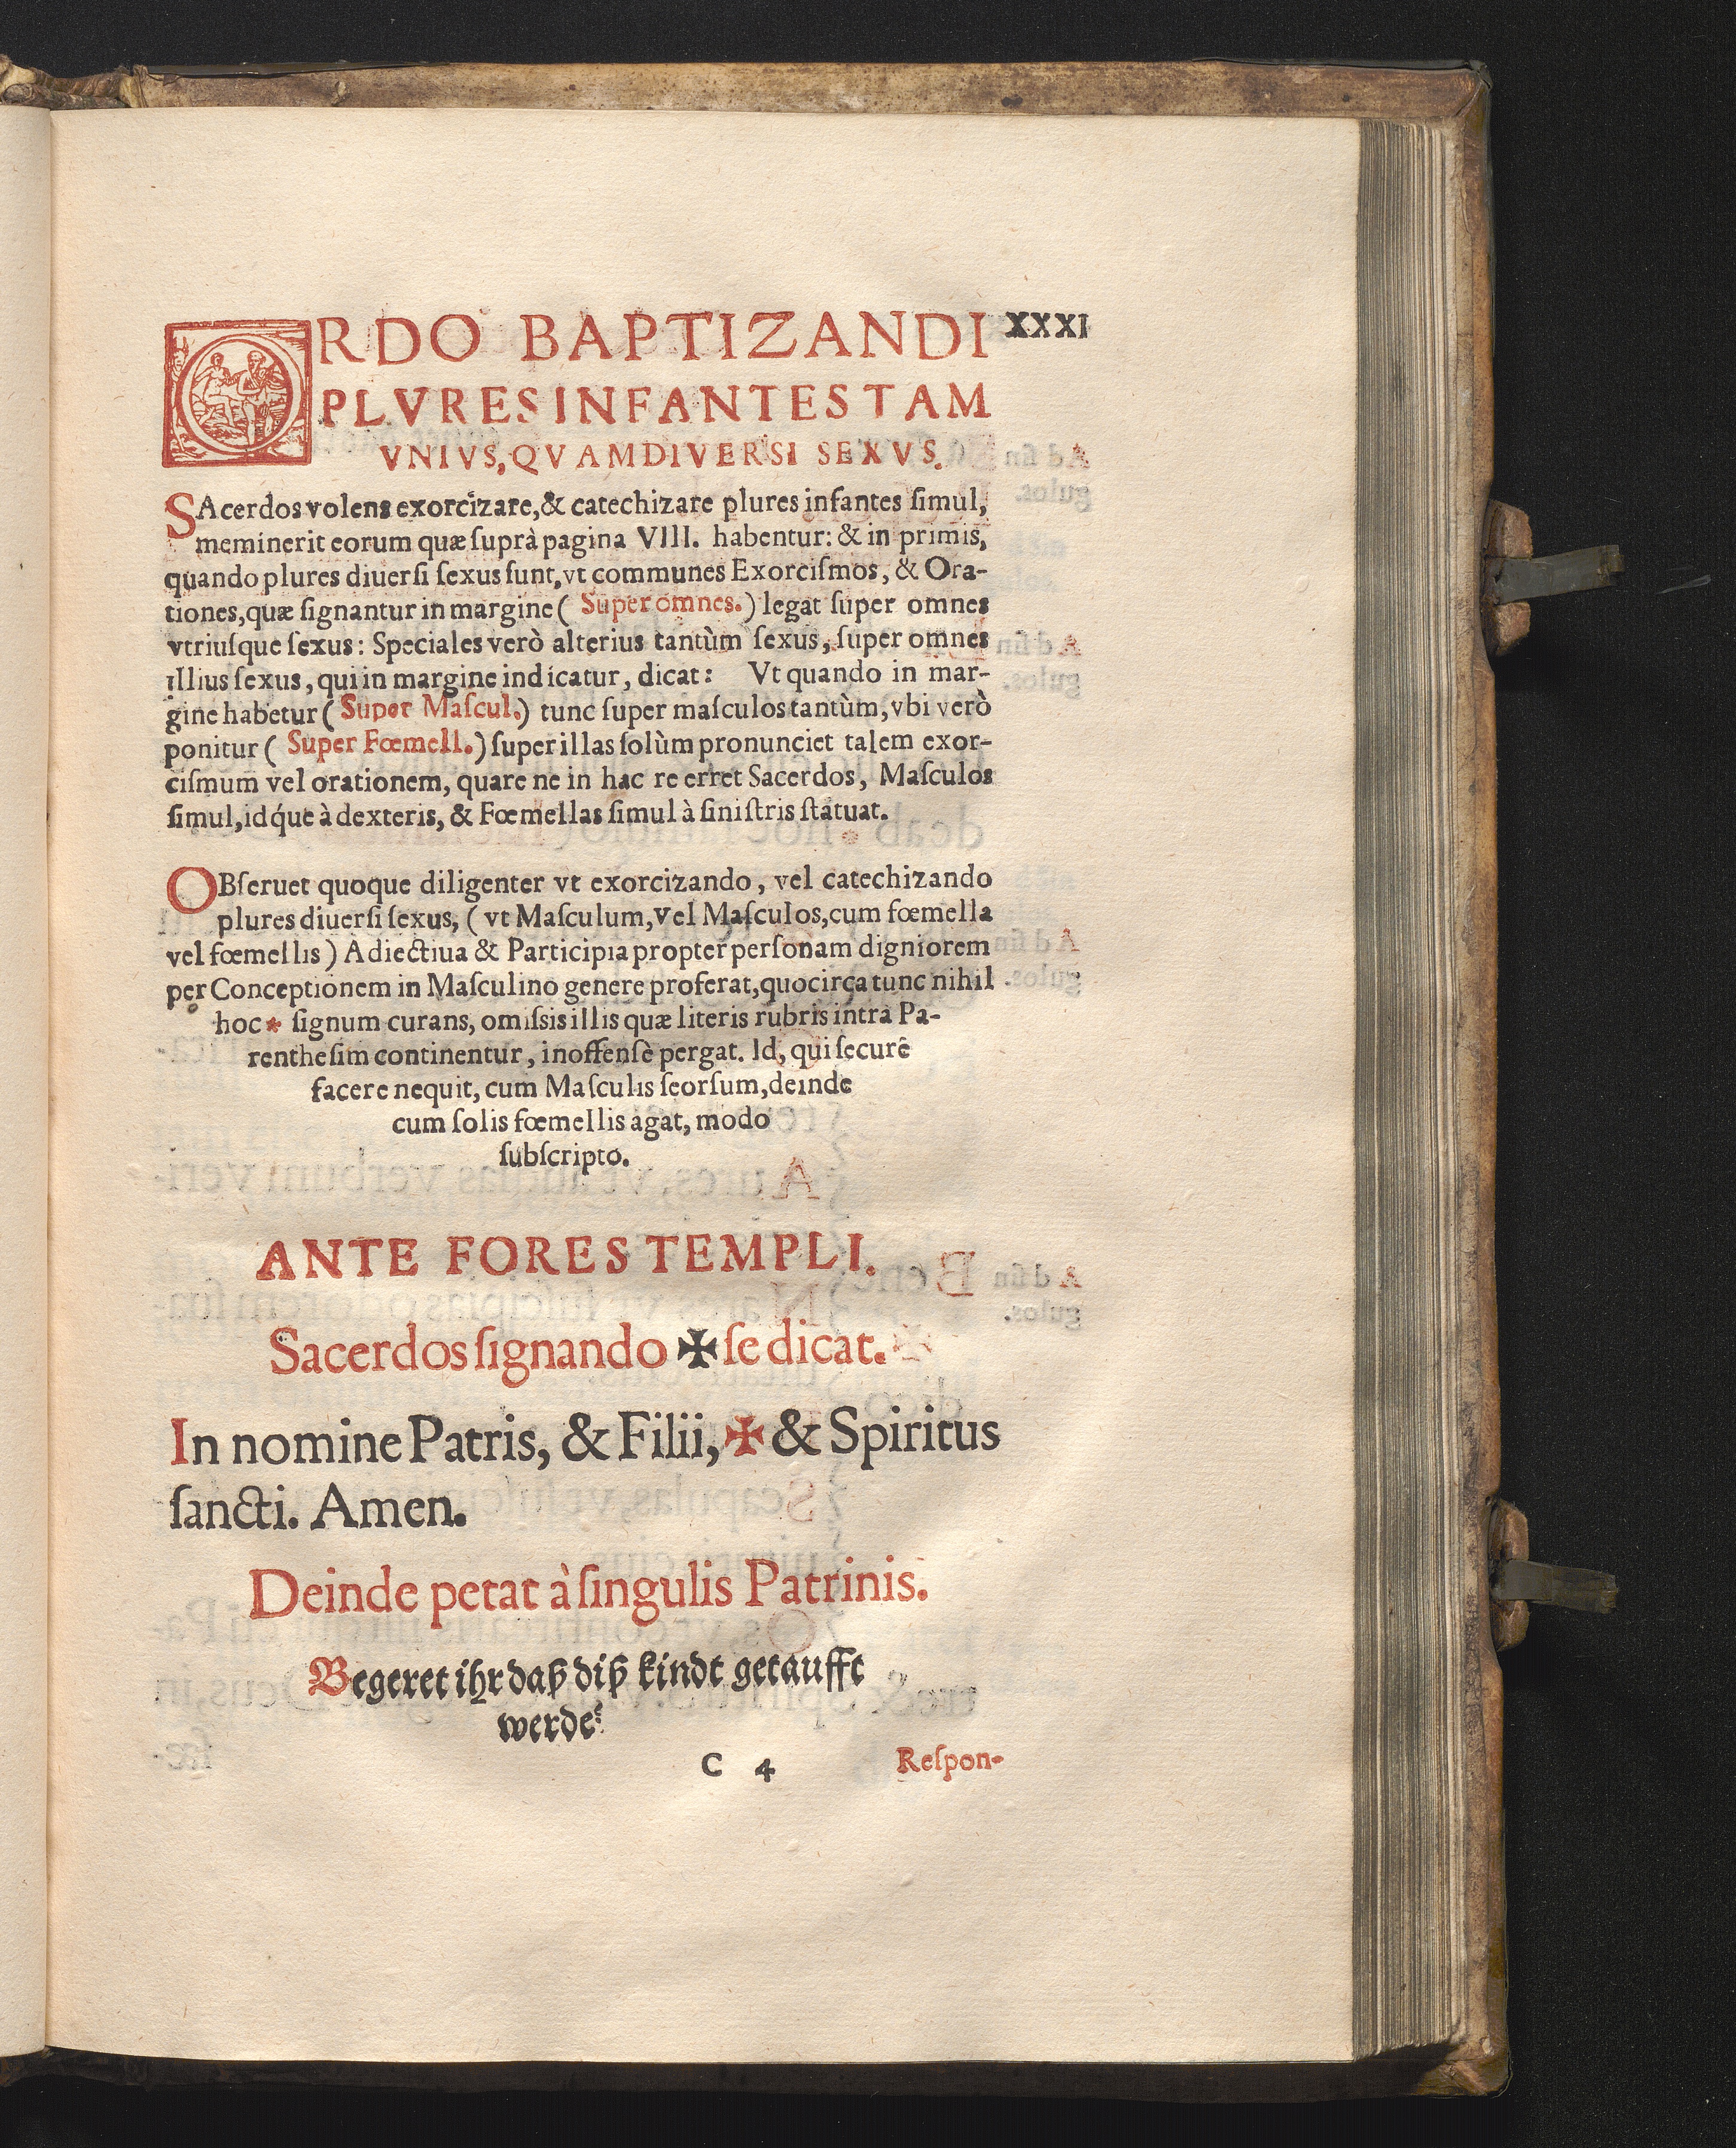 ORDO BAPTIZANDI XXXI
PLVRES INFANTES TAM
VNIVS, QVAM DIVERSI SEXVS.
SAcerdos volens exorcizare, & catechizare plures infantes ſimul,
meminerit eorum quæ ſuprà pagina VIII. habentur: & in primis,
quando plures diuerſi ſexus ſunt, vt communes Exorciſmos, & Ora-
tiones, quæ ſignantur in margine ( Super omnes.) legat ſuper omnes
vtriuſque ſexus: Speciales verò alterius tantùm ſexus, ſuper omnes
illius ſexus, qui in margine indicatur, dicat: Vt quando in mar-
gine habetur ( Super Maſcul.) tunc ſuper maſculos tantùm, vbi verò
ponitur ( Super Fœmell.) ſuper illas ſolùm pronunciet talem exor-
ciſmum vel orationem, quare ne in hac re erret Sacerdos, Maſculos
ſimul, idq́ue à dexteris, & Fœmellas ſimul à ſiniſtris ſtatuat.
OBſeruet quoque diligenter vt exorcizando, vel catechizando
plures diuerſi ſexus, ( vt Maſculum, vel Maſculos, cum fœmella
vel fœmellis ) Adiectiua & Participia propter perſonam digniorem
per Conceptionem in Maſculino genere proferat, quocirca tunc nihil
hoc * ſignum curans, omiſsis illis quæ literis rubris intra Pa-
rentheſim continentur, inoffenſè pergat. Id, qui ſecurè
facere nequit, cum Maſculis ſeorſum, deinde
cum ſolis fœmellis agat, modo
ſubſcripto.
ANTE FORES TEMPLI.
Sacerdos ſignando ✠ ſe dicat.
In nomine Patris, & Filii, ✠ & Spiritus
ſancti. Amen.
Deinde petat à ſingulis Patrinis.
Begeret ihr daß diß kindt getaufft
werde?
C 4 Reſpon-